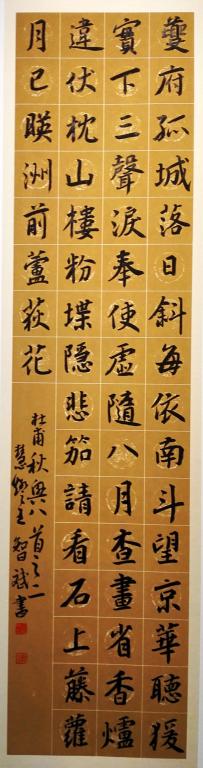 夔府孤城落日斜每依南斗望京華聽猨
實下三聲淚奉使虛隨八月查畫省香爐
違伏枕山樓粉堞隱悲笳請看石上藤蘿
月已暎洲前蘆荻花
杜甫秋興八首之二
智斌書